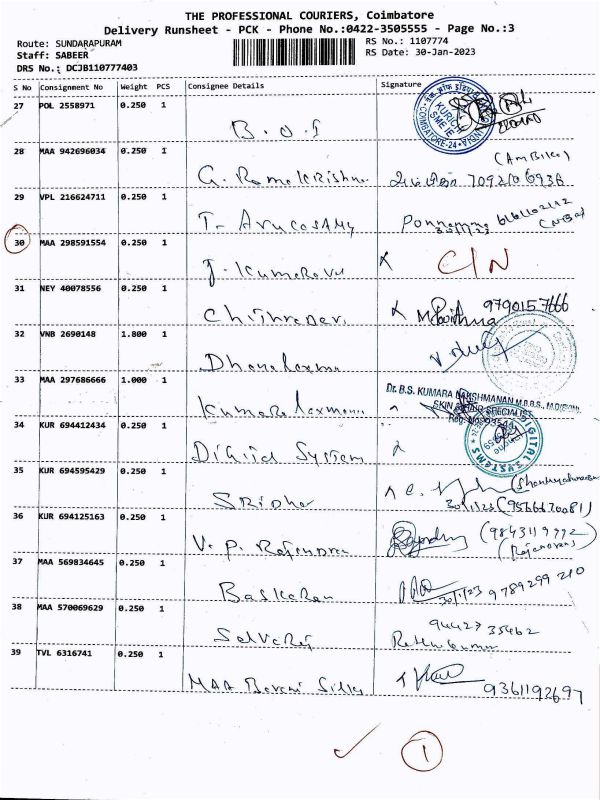 THE PROFESSIONAL COURIERS, Coimbatore
Delivery Runsheet - PCK - Phone No.:0422-3505555 - Page No.:3
Route: SUNDARAPURAM
RS No.: 1107774
Staff: SABEER
RS Date: 30-Jan-2023
DRS No.: DCJB110777403
S No Consignment No Weight PCS Consignee Details Signature
27 POL 2558971 0.250 1
B.O.I
28 MAA 942696034 0.250 1
G. Ramakrishna
29 VPL 216624711 0.250 1
T- Arucosamy
30 MAA 298591554 0.250 1
J. Kumaravu C/N
31 NEY 40078556 0.250 1
Chithradevi 9790157666
32 VNB 2690148 1.800 1
Dhanalaxmi
33 MAA 297686666 1.000 1
Dr. B.S. KUMARA LAKSHMANAN M.B.B.S.,
SKIN SPECIALIST
34 KUR 694412434 0.250 1
Digital System
DIGITAL SYSTEMS
35 KUR 694595429 0.250 1
Sridhar
30/1/23 (9566670081)
36 KUR 694125163 0.250 1
V. P. Rajendran (9843119992
37 MAA 569834645 0.250 1
Baskaran 30/1/23 9789299210
38 MAA 570069629 0.250 1
Selvaraj 9442735462
39 TVL 6316741 0.250 1
9361192697
1